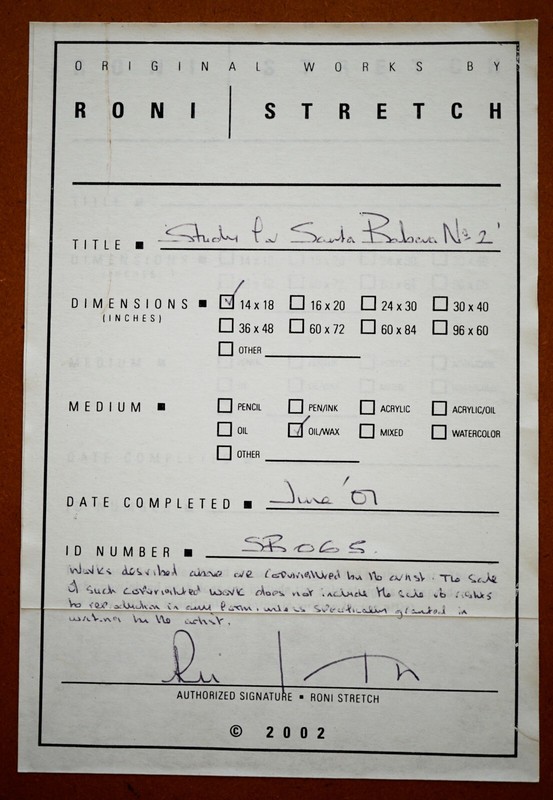 ORIGINAL WORKS BY
RONI | STRETCH
TITLE ■ 'Study for Santa Babara No 2'
DIMENSIONS ■ 14 x 18 16 x 20 24 x 30 30 x 40
(INCHES) 36 x 48 60 x 72 60 x 84 96 x 60
OTHER
MEDIUM ■ PENCIL PEN/INK ACRYLIC ACRYLIC/OIL
OIL OIL/WAX MIXED WATERCOLOR
OTHER
DATE COMPLETED ■ June '07
ID NUMBER ■ SB065.
Works described above are copyrighted by the artist. The sale
of such copyrighted work does not include the sale of rights
to reproduction in any form, unless specifically granted in
writing by the artist.
AUTHORIZED SIGNATURE ■ RONI STRETCH
© 2002